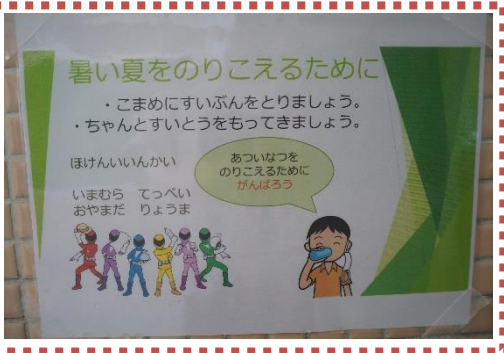 暑い夏をのりこえるために
・こまめにすいぶんをとりましょう。
・ちゃんとすいとうをもってきましょう。
ほけんいいんかい
いまむら　てっぺい
おやまだ　りょうま
あついなつを
のりこえるために
がんばろう